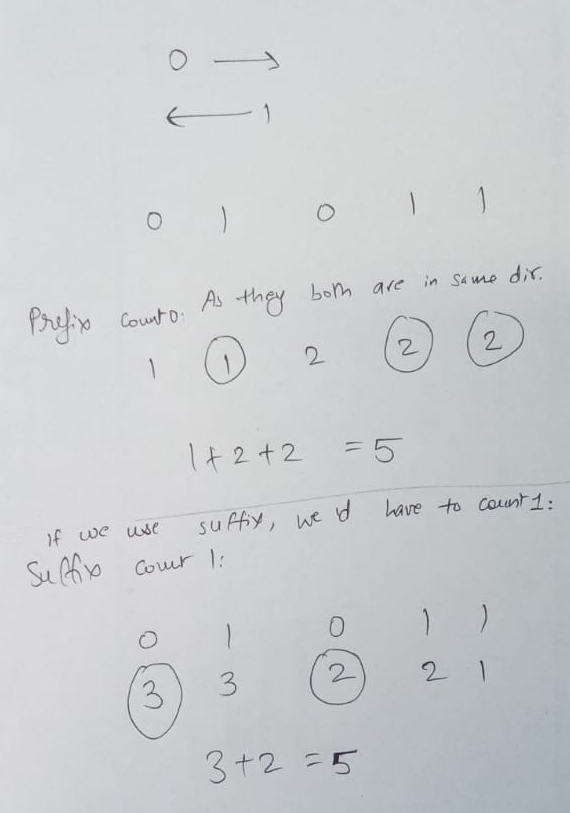 0 →
← 1
0 1 0 1 1
Prefix count 0: As they both are in same dir.
1 1 2 2 2
1 + 2 + 2 = 5
if we use suffix, we'd have to count 1:
Suffix count 1:
0 1 0 1 1
3 3 2 2 1
3 + 2 = 5